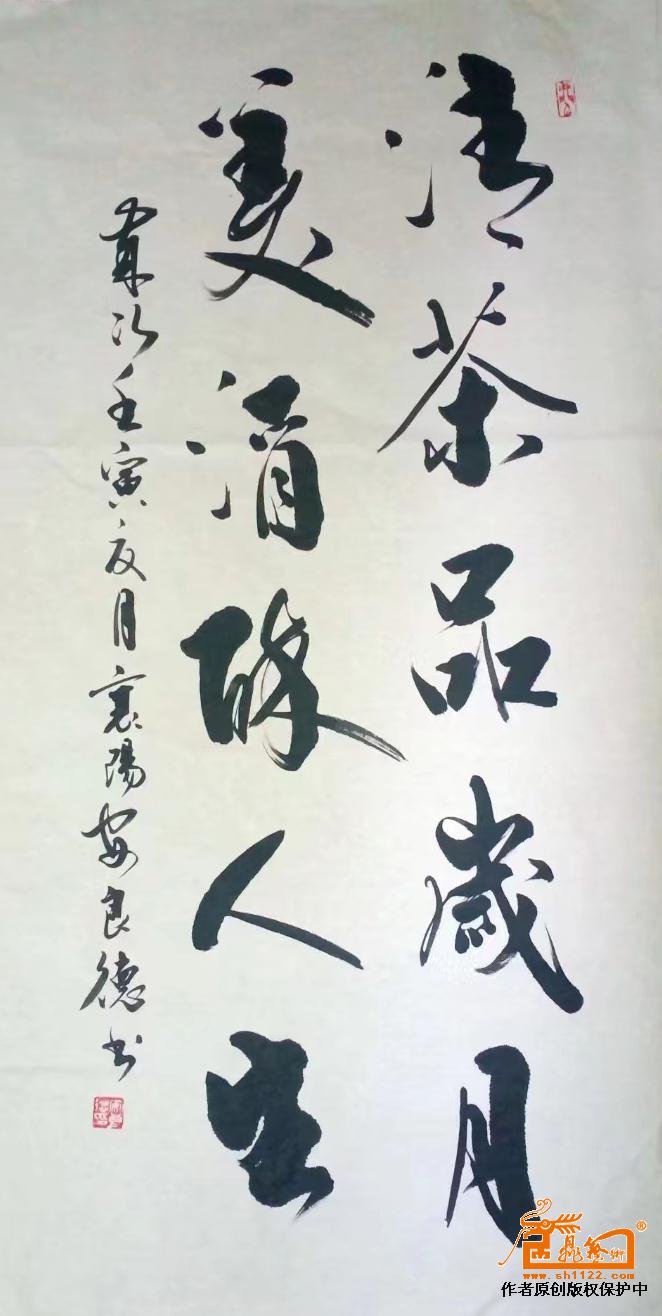 清茶品歲月
美酒醉人生
歲次壬寅夏月襄陽安良德书
www.sh1122.com
作者原创版权保护中